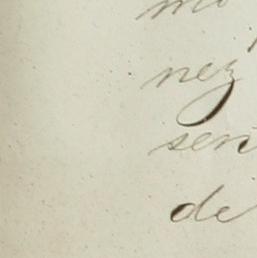 mo
ney
sen
de